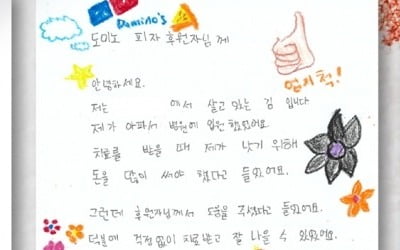 Domino's
도미노 피자 후원자님께
엄지척!
안녕하세요.
저는 에서 살고 있는 김 입니다
제가 아파서 병원에 입원했었어요.
치료를 받을 때 제가 낫기 위해
돈을 많이 써야 했다고 들었어요.
그런데 후원자님께서 도움을 주셨다고 들었어요.
덕분에 걱정없이 치료받고 잘 나을 수 있었어요.